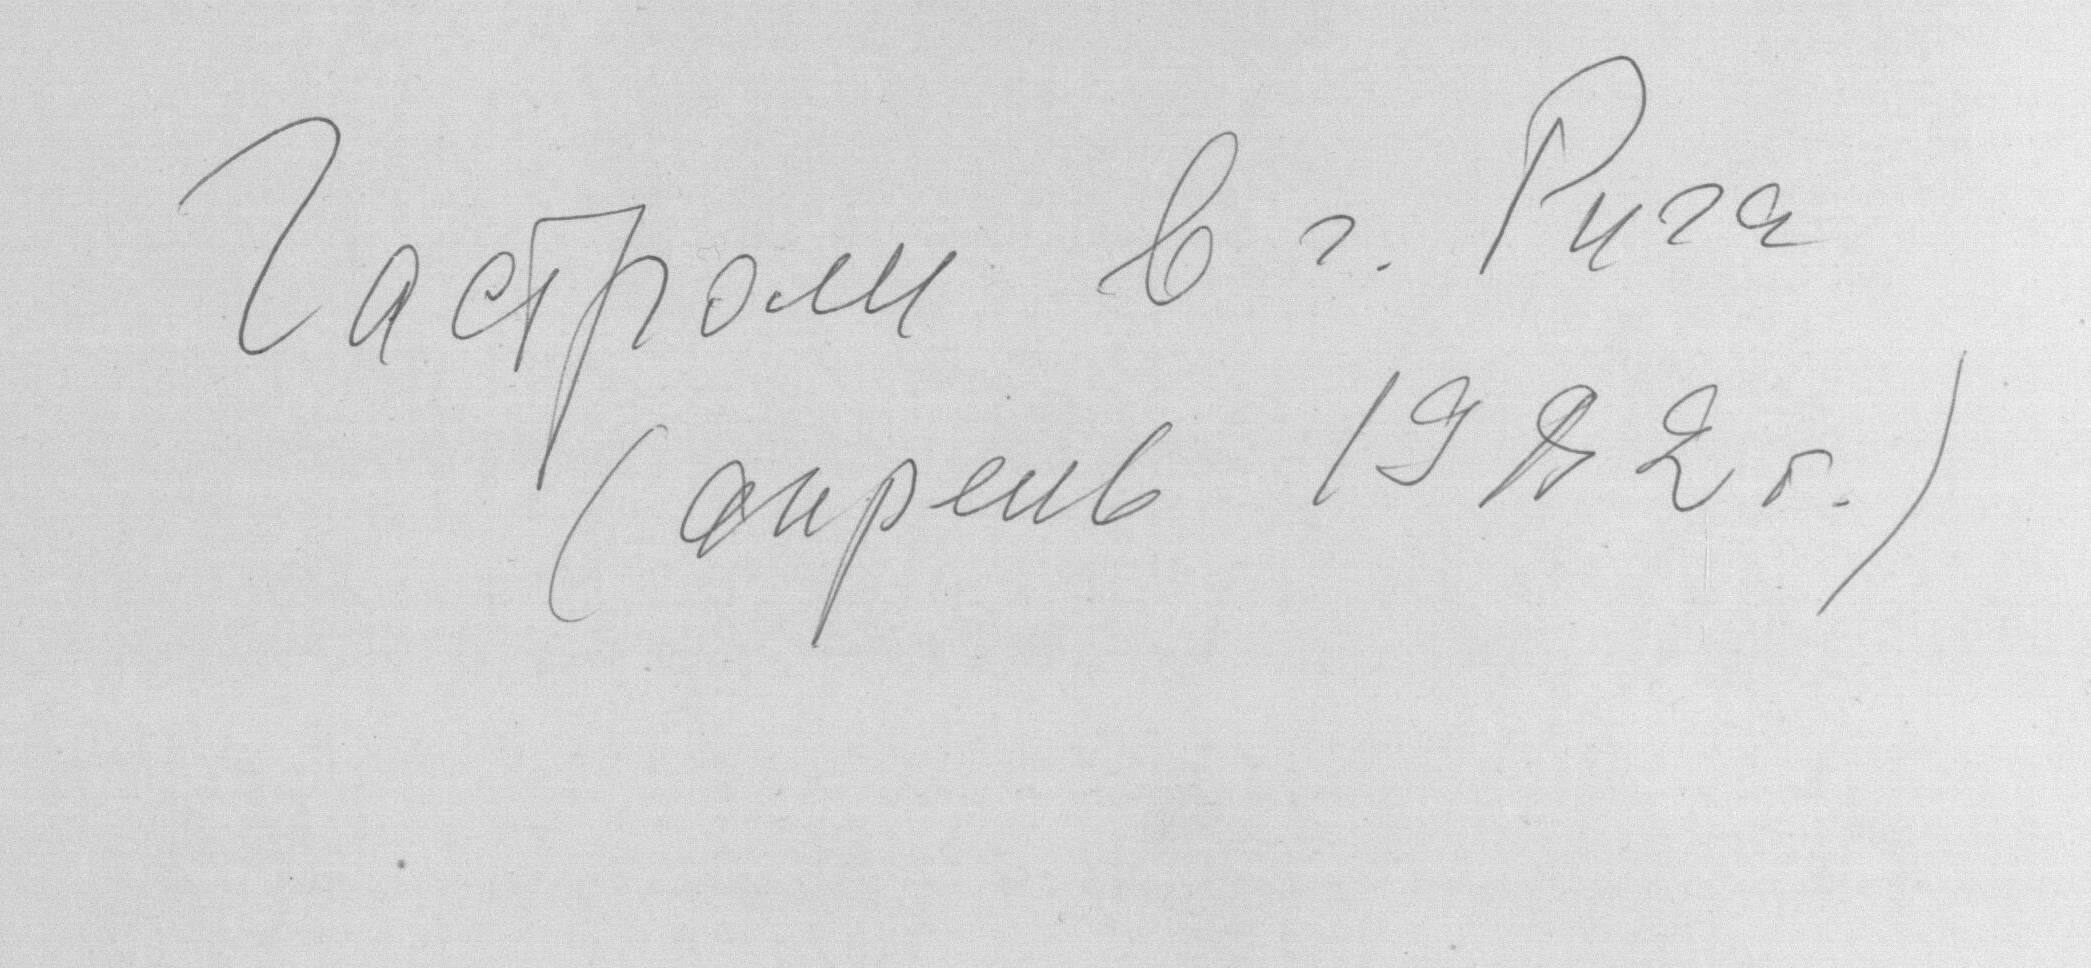 Гастроли в г. Рига
(апрель 1982 г.)